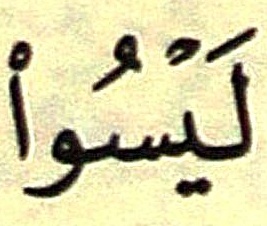 لَيْسُوا۟